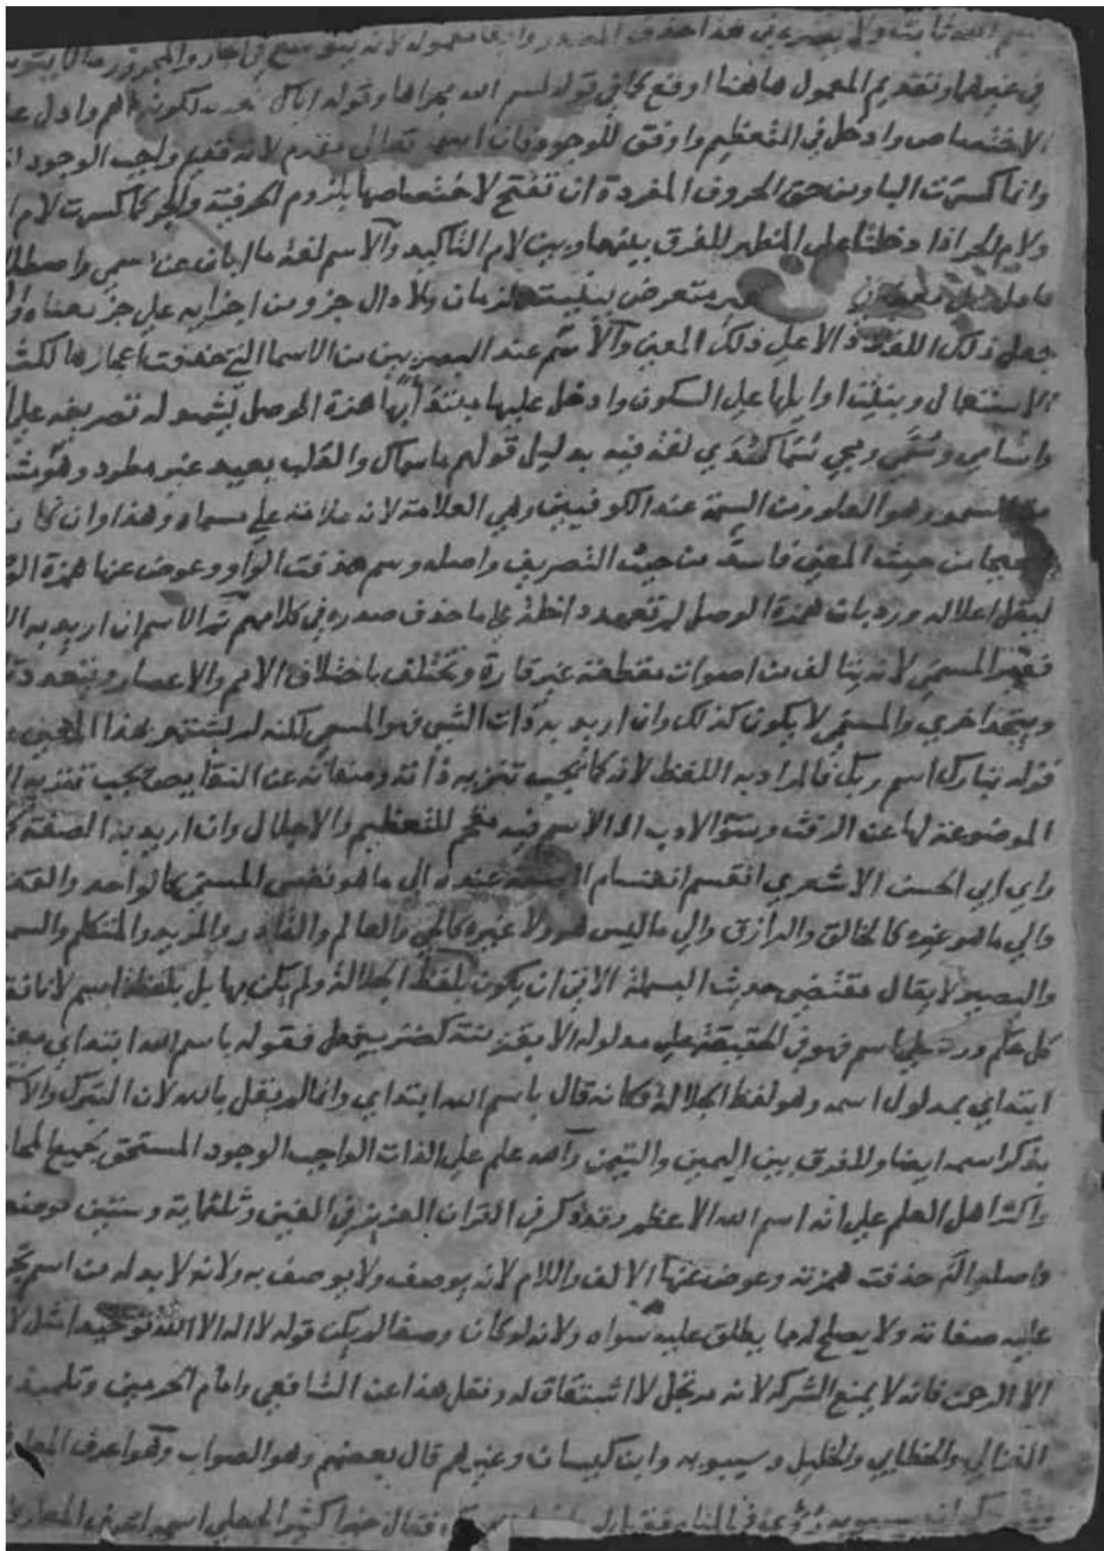 ولا يضر في هذا حذف المصدر وابقا معموله لانه يتوسع في الجار والمجرور ما لا يتوسع
في غيرهما وتقديم المعمول هاهنا اوقع كما في قوله بسم الله مجراها وقوله اياك نعبد لكونه اهم وادل على
الاختصاص وادخل في التعظيم واوفق للوجود فان اسمه تعالى مقدم لانه قديم واجب الوجود
وانما كسرت الباء ومن حق الحروف المفردة ان تفتح لاختصاصها بلزوم الحرفية والجر كما كسرت لام
ولام الجر اذا دخلتا على المظهر للفرق بينهما وبين لام التأكيد والاسم لغة ما ابان عن مسمى واصطلاحا
ما دل على معنى في يتعرض ببنيته لزمان ولا دال جزو من اجزايه على جز معناه
جعل ذلك اللفظ دالا على ذلك المعنى والاسم عند البصريين من الاسما التي حذفت اعجازها لكثرة
الاستعمال وبنيت اوايلها على السكون وادخل عليها مبتدأ بها همزة الوصل يشهد له تصريفه على
واسامي وسُمَيّ ومجي سُمًا كهُدًي لغة فيه بدليل قولهم ما سماك والقلب بعيد غير مطرد
السمو وهو العلو ومن السمة عند الكوفيين وهي العلامة لانه علامة على مسماه وهذا وان كان
صحيحا من حيث المعنى فاسد من حيث التصريف واصله وسم حذفت الواو وعوض عنها همزة
ليقل اعلاله ورد بان همزة الوصل لم تعهد داخلة على ما حذف صدره في كلامهم ثم الاسم ان اريد به
فغير المسمى لانه يتالف من اصوات مقطعة غير قارة وتختلف باختلاف الامم والاعصار ويتعدد
ويتحد اخري والمسمى لا يكون كذلك وان اريد به ذات الشي فهو المسمى لكنه لم يشتهر بهذا المعنى
قوله تبارك اسم ربك فالمراد به اللفظ لانه كما يجب تنزيه ذاته وصفاته عن النقايص يجب تنزيه
الموضوعة لها عن الرفث وسوء الادب او الاسم فيه مقحم للتعظيم والاجلال وان اريد به الصفة كما
راي ابي الحسن الاشعري انقسم انقسام الصفة عنده الى ما هو نفس المسمى كالواحد والقديم
والي ما هو غيره كالخالق والرازق والي ما ليس هو ولا غيره كالحي والعالم والقادر والمريد والمتكلم والسميع
والبصير لا يقال مقتضى حديث البسملة الاتي ان يكون بلفظ الجلالة ولم يكن بها بل بلفظ اسم لانا نقول
كل حكم ورد على اسم فهو في الحقيقة على مدلوله الا بقرينة كضرب فعل فقوله باسم الله ابتداي معناه
ابتداي بمدلول اسمه وهو لفظ الجلالة فكانه قال باسم الله ابتداي وانما لم يقل بالله لان التبرك
بذكر اسمه ايضا وللفرق بين اليمين والتيمن والله علم على الذات الواجب الوجود المستحق لجميع المحامد
واكثر اهل العلم على انه اسم الله الاعظم وقد ذكر في القران العزيز في الفين وثلثماية وستين موضعا
واصله اله حذفت همزته وعوض عنها الالف واللام لانه يوصف ولا يوصف به ولانه لا بد له من اسم تجري
عليه صفاته ولا يصلح له مما يطلق عليه سواه ولانه لو كان وصفا لم يكن قوله لا اله الا الله توحيدا مثل لا
الا الرحمن فانه لا يمنع الشركة لانه مرتجل لا اشتقاق له ونقل هذا عن الشافعي وامام الحرمين وتلميذه
الغزالي والخطابي والخليل وسيبويه وابن كيسان وغيرهم قال بعضهم وهو الصواب وهو اعرف المعارف
سيبويه رؤي في المنام فقيل له فقال خيرا كثيرا لجعلي اسمه اعرف المعارف